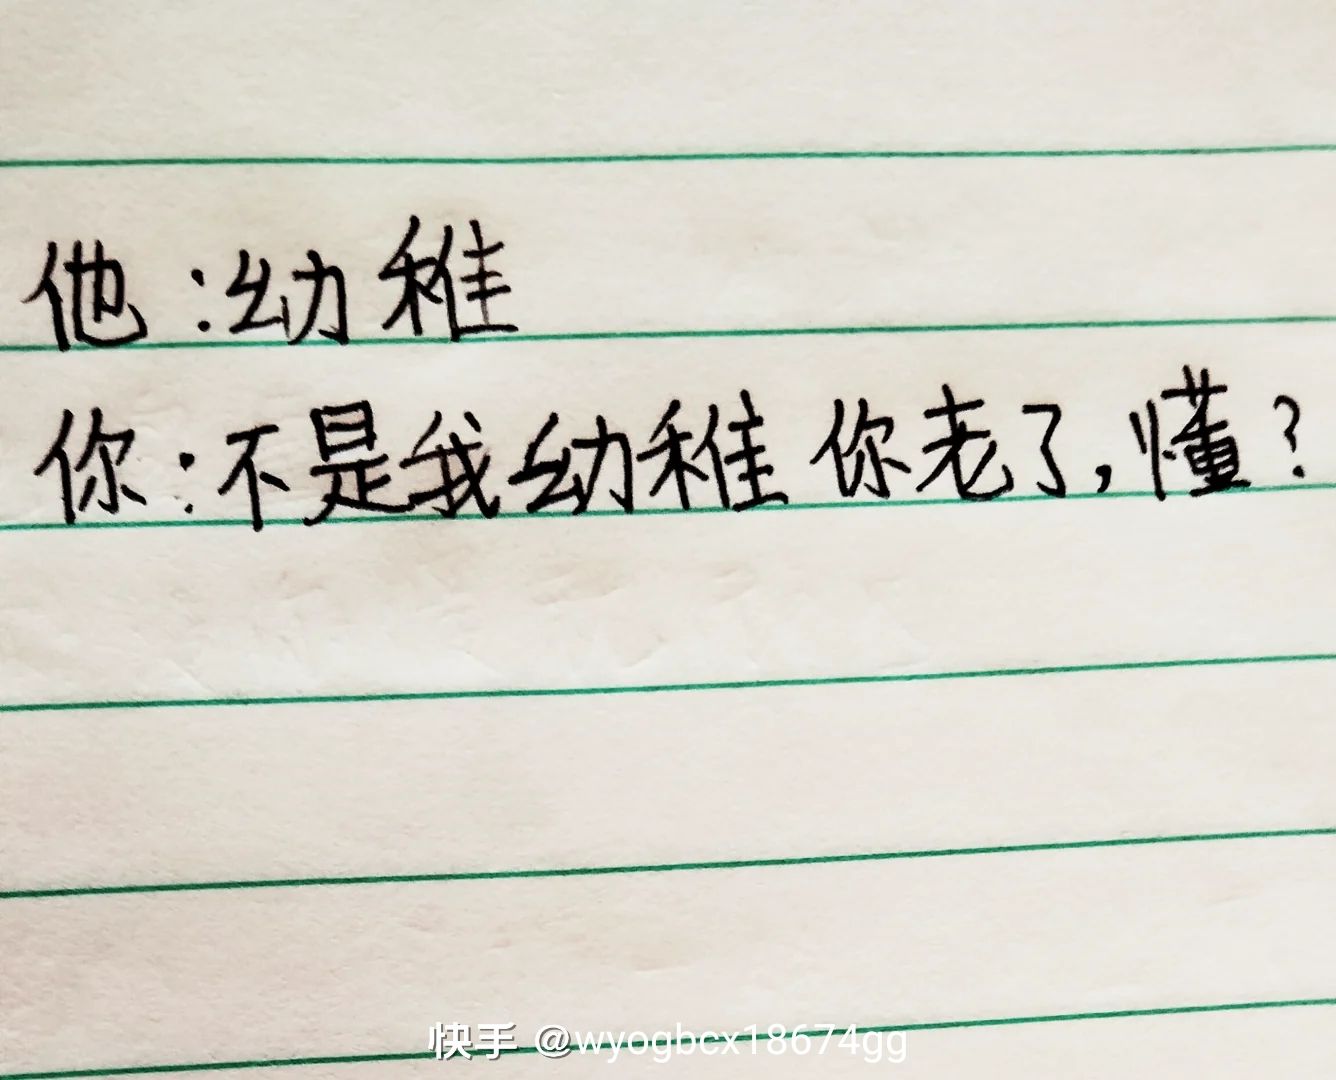 他:幼稚
你:不是我幼稚 你老了,懂?
快手 @wyogbcx18674gg